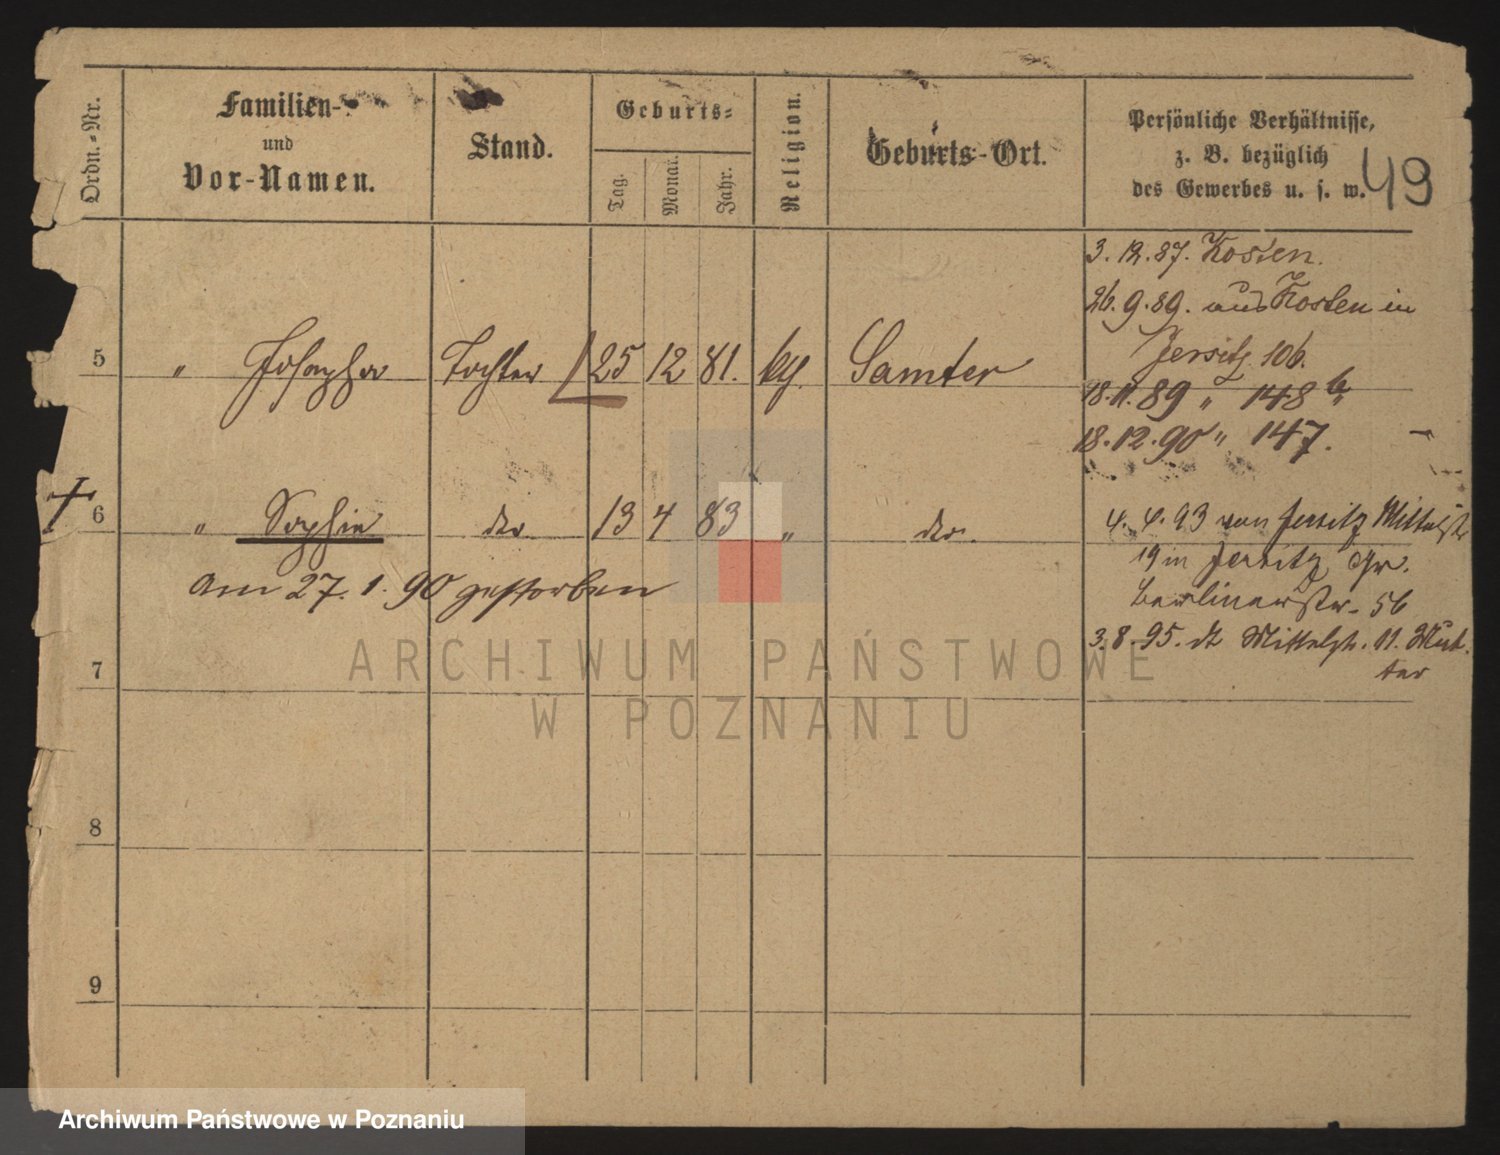 Ordn.-Nr.
Familien-
und
Vor-Namen.
Stand.
Geburts-
Tag.
Monat.
Jahr.
Religion.
Geburts-Ort.
Persönliche Verhältnisse,
z. B. bezüglich
des Gewerbes u. s. w.
49
3.12.87. Kosten.
26.9.89. aus Kosten in
Jersitz 106.
5 " Josepha Tochter 25 12 81. kth. Samter
18.11.89 " 148 b
18.12.90 " 147.
6 " Sophie dto 13 4 83 " dto.
am 27.1.90 gestorben
4.4.93 von Jersitz Mittelstr
19 in Jersitz, Gr.
Berlinerstr. 56
3.8.95. dt Mittelstr. 11. Mut-
ter
7
8
9
ARCHIWUM PAŃSTWOWE
W POZNANIU
Archiwum Państwowe w Poznaniu